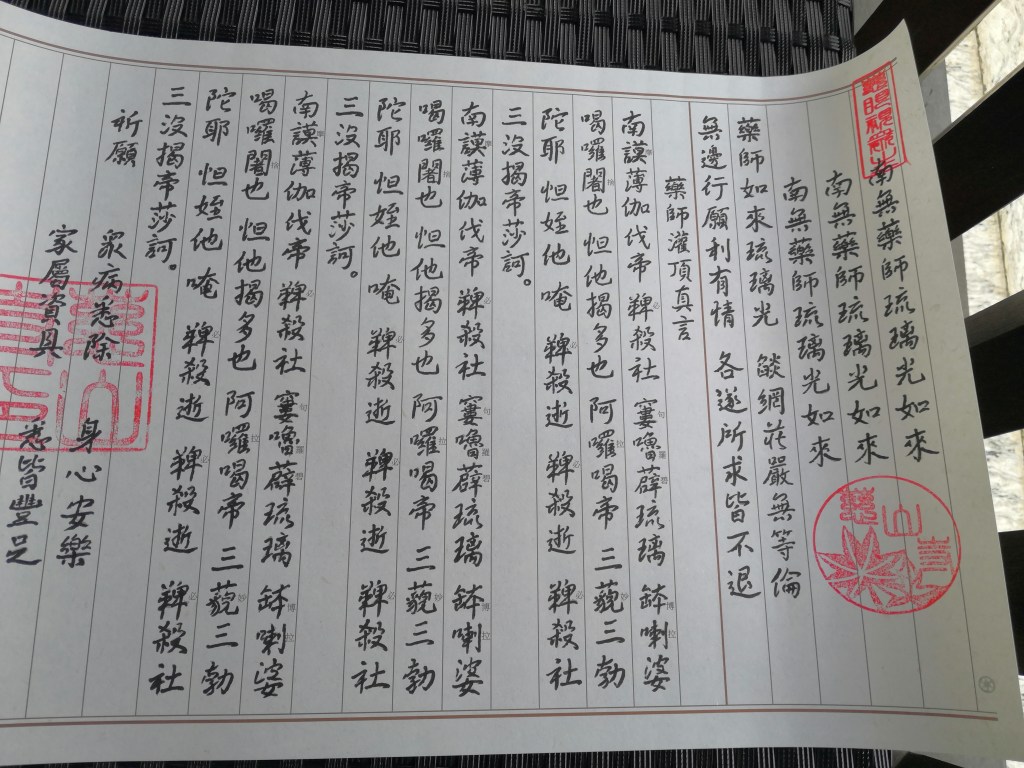 南無藥師琉璃光如來
南無藥師琉璃光如來
南無藥師琉璃光如來
藥師如來琉璃光 燄網莊嚴無等倫
無邊行願利有情 各遂所求皆不退
藥師灌頂真言
南謨薄伽伐帝 鞞殺社 窶嚕薜琉璃 鉢喇婆
喝囉闍也 怛他揭多也 阿囉喝帝 三藐三勃
陀耶 怛姪他 唵 鞞殺逝 鞞殺逝 鞞殺社
三沒揭帝莎訶。
南謨薄伽伐帝 鞞殺社 窶嚕薜琉璃 鉢喇婆
喝囉闍也 怛他揭多也 阿囉喝帝 三藐三勃
陀耶 怛姪他 唵 鞞殺逝 鞞殺逝 鞞殺社
三沒揭帝莎訶。
南謨薄伽伐帝 鞞殺社 窶嚕薜琉璃 鉢喇婆
喝囉闍也 怛他揭多也 阿囉喝帝 三藐三勃
陀耶 怛姪他 唵 鞞殺逝 鞞殺逝 鞞殺社
三沒揭帝莎訶。
祈願
眾病悉除 身心安樂
家屬資具 悉皆豐足